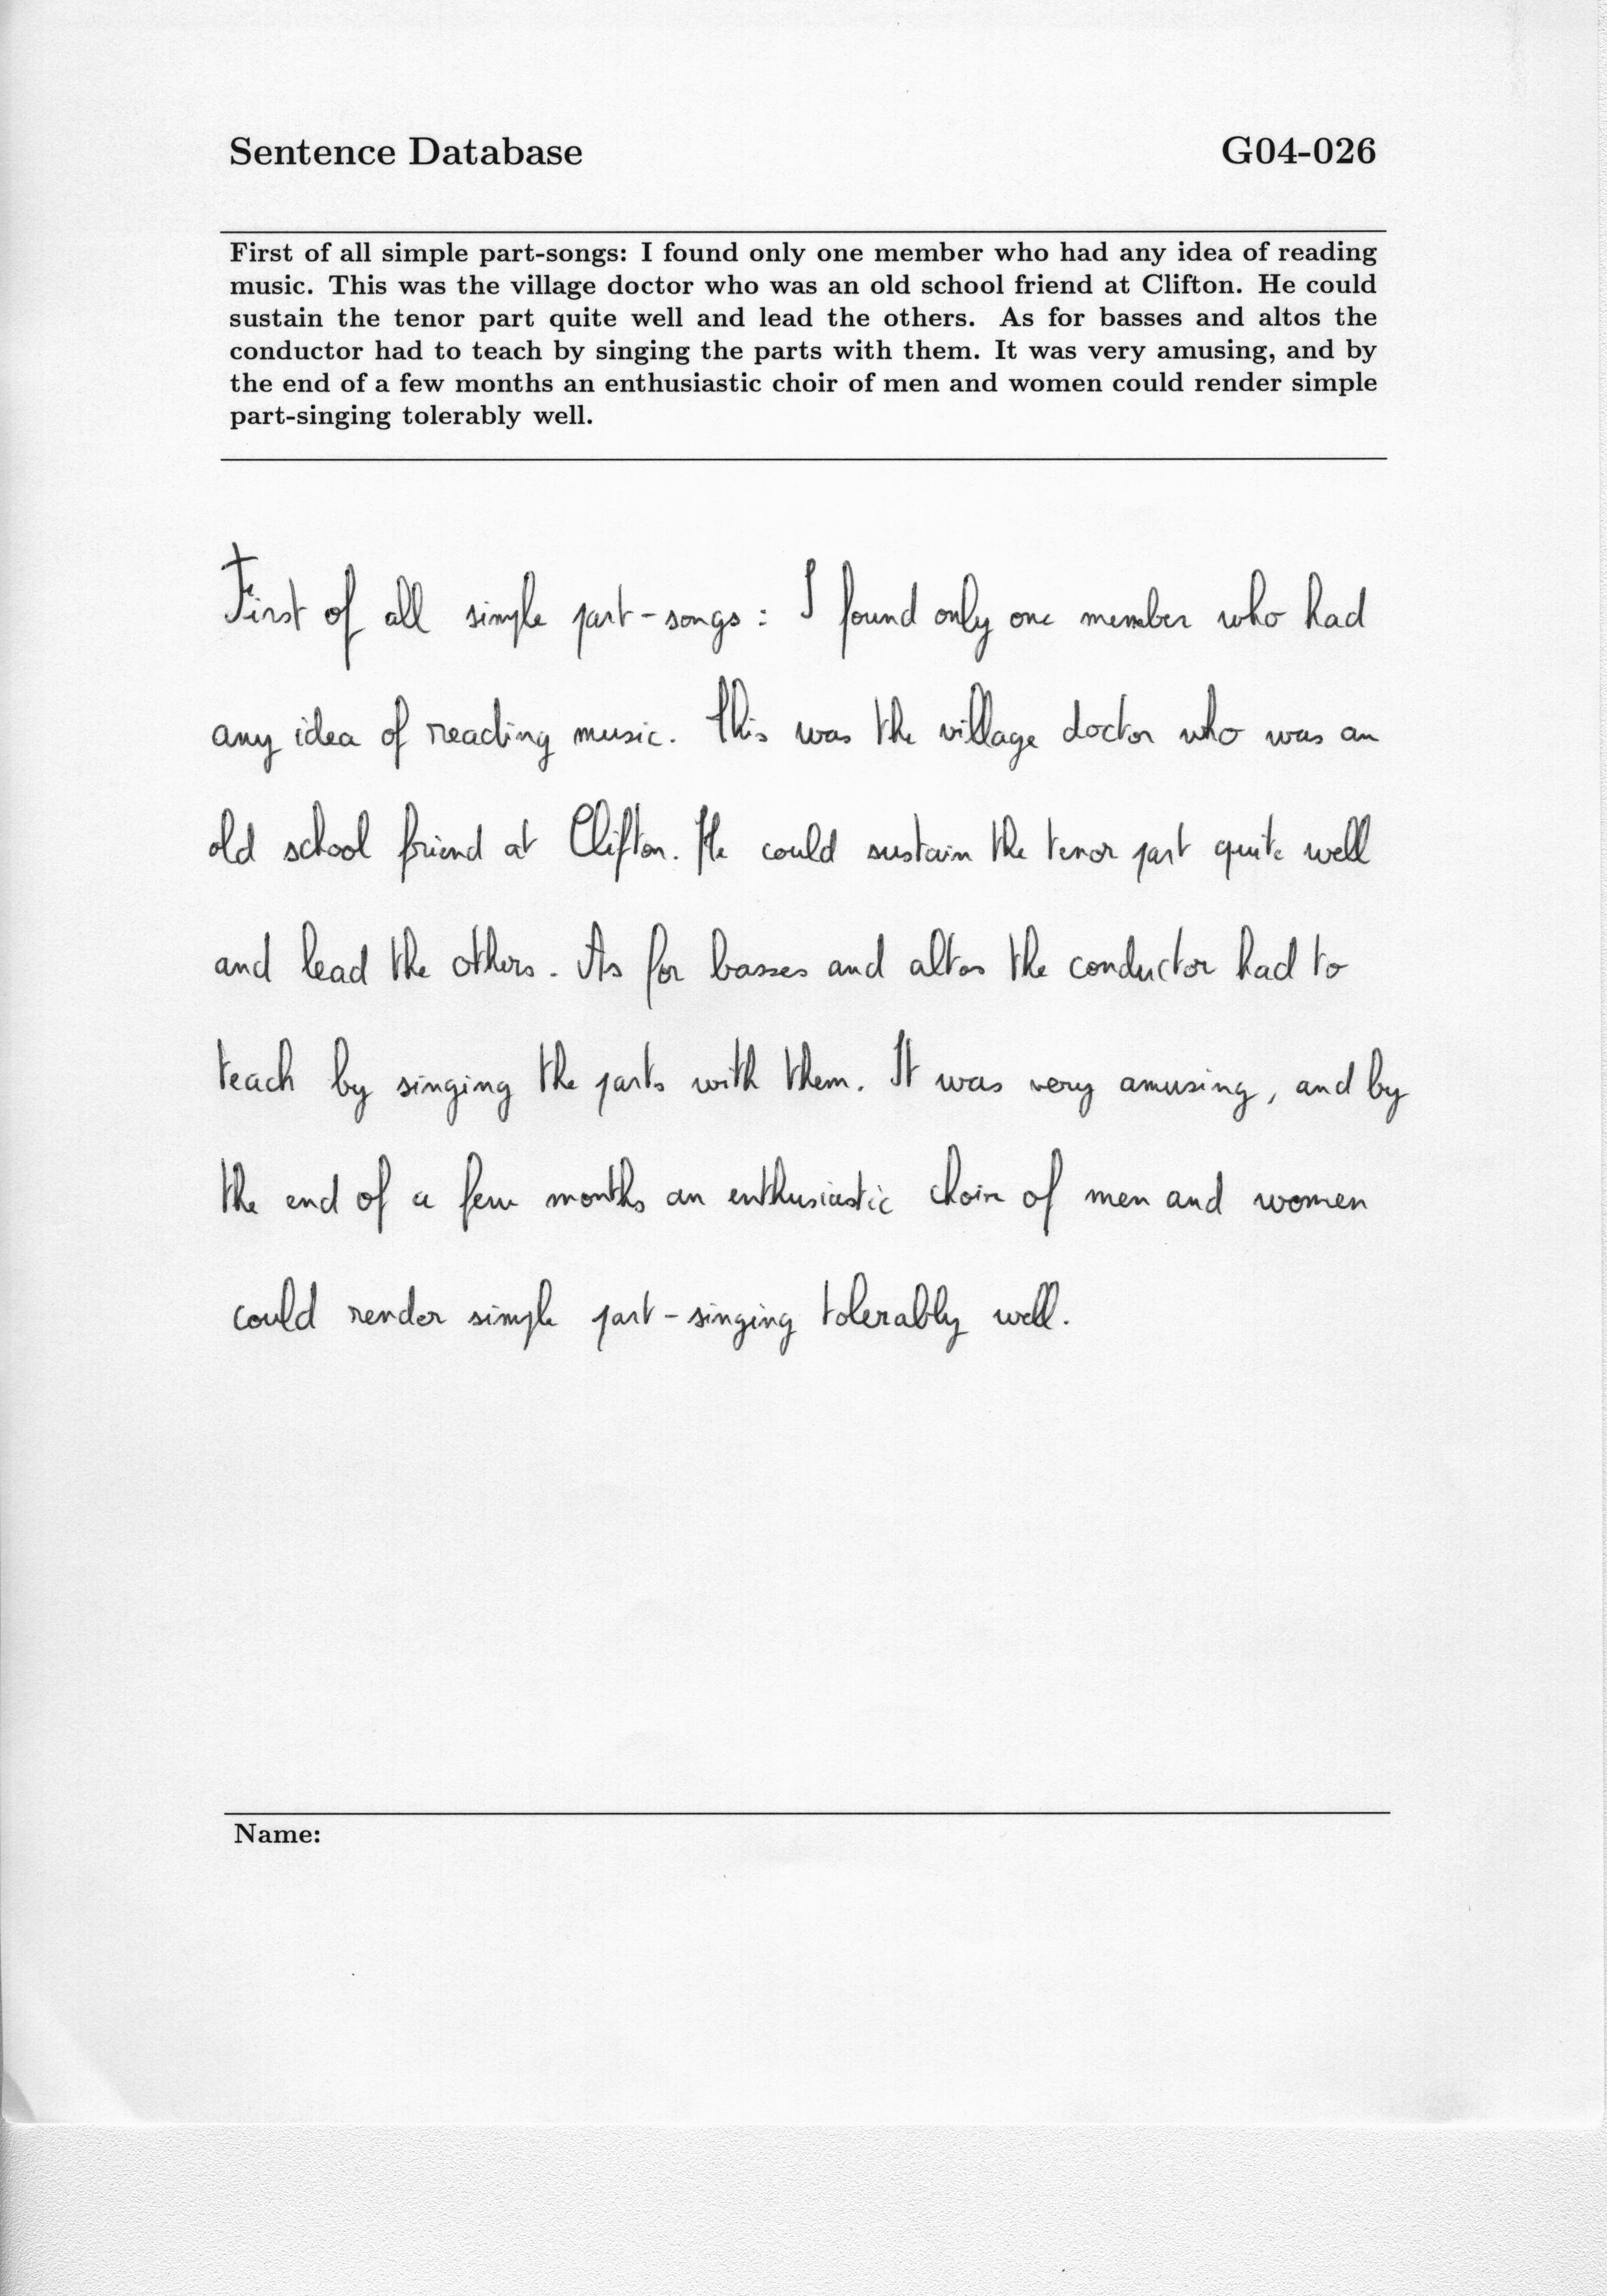 Sentence Database G04-026
First of all simple part-songs: I found only one member who had any idea of reading
music. This was the village doctor who was an old school friend at Clifton. He could
sustain the tenor part quite well and lead the others. As for basses and altos the
conductor had to teach by singing the parts with them. It was very amusing, and by
the end of a few months an enthusiastic choir of men and women could render simple
part-singing tolerably well.
First of all simple part-songs: I found only one member who had
any idea of reading music. This was the village doctor who was an
old school friend at Clifton. He could sustain the tenor part quite well
and lead the others. As for basses and altos the conductor had to
teach by singing the parts with them. It was very amusing, and by
the end of a few months an enthusiastic choir of men and women
could render simple part-singing tolerably well.
Name: